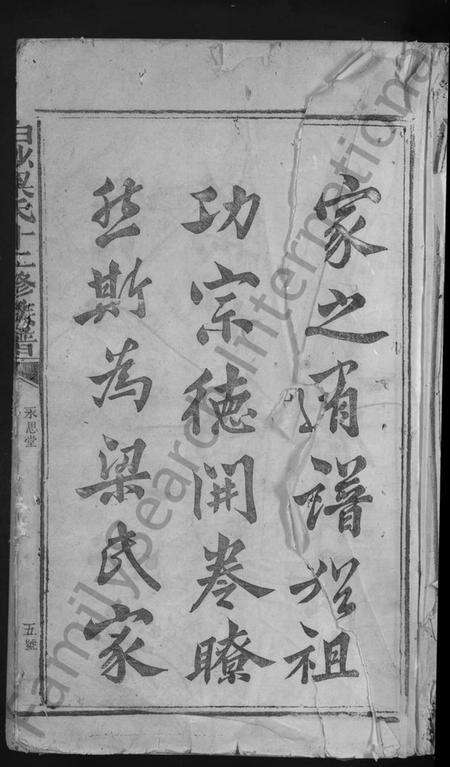 家之有譜祖
功宗德開卷瞭
然斯為梁氏家
氏十二修族譜
永思堂
五號
FamilySearch International